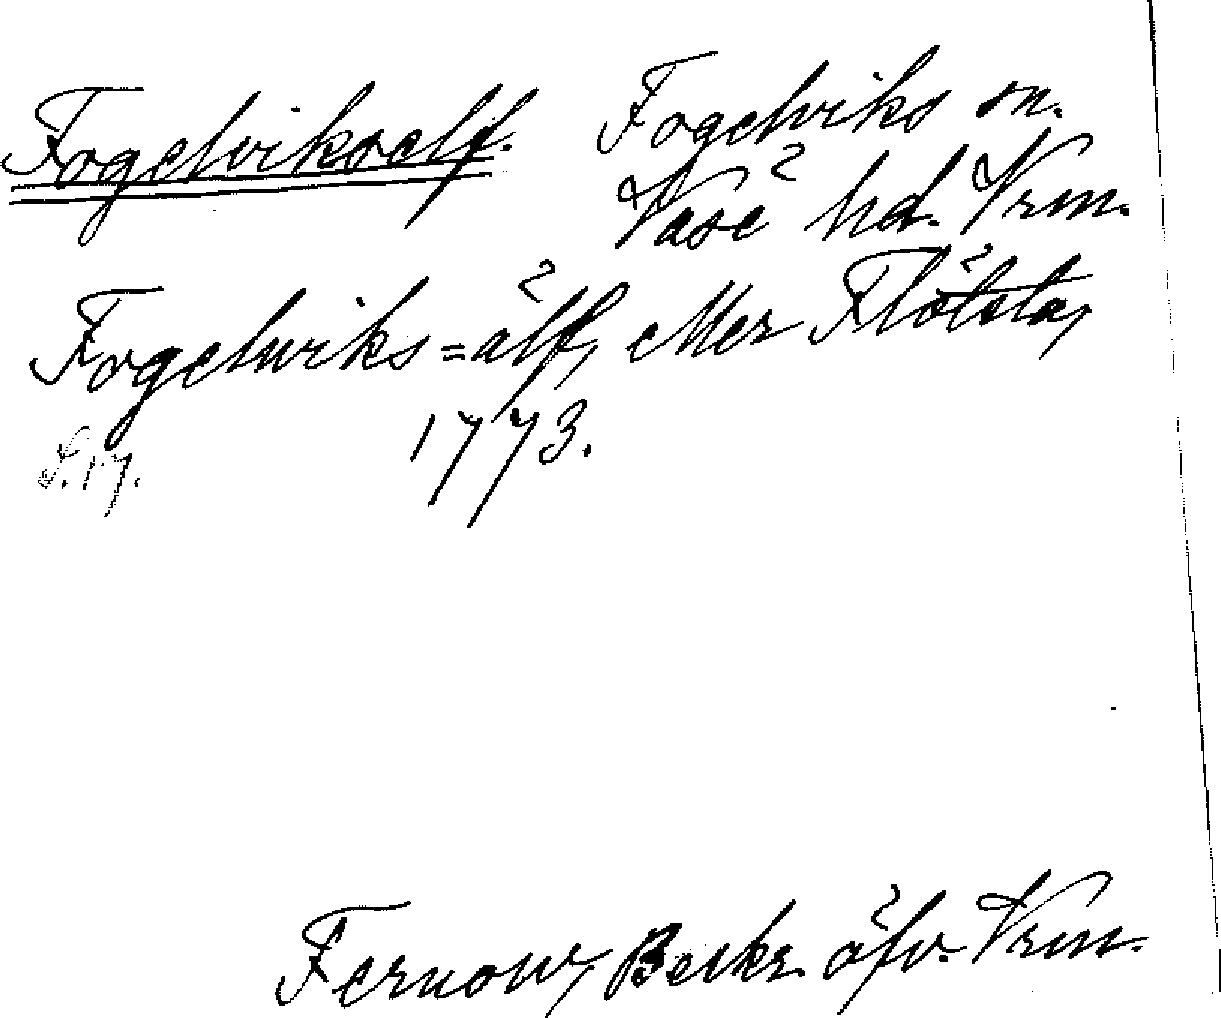 Fogelviksälf. Fogelviks sn.
Väse hd. Vrm.
Fogelwiks=älf, eller Flötsta,
1773.
S. 17.
Fernow, Beskr. öfv. Vrm.